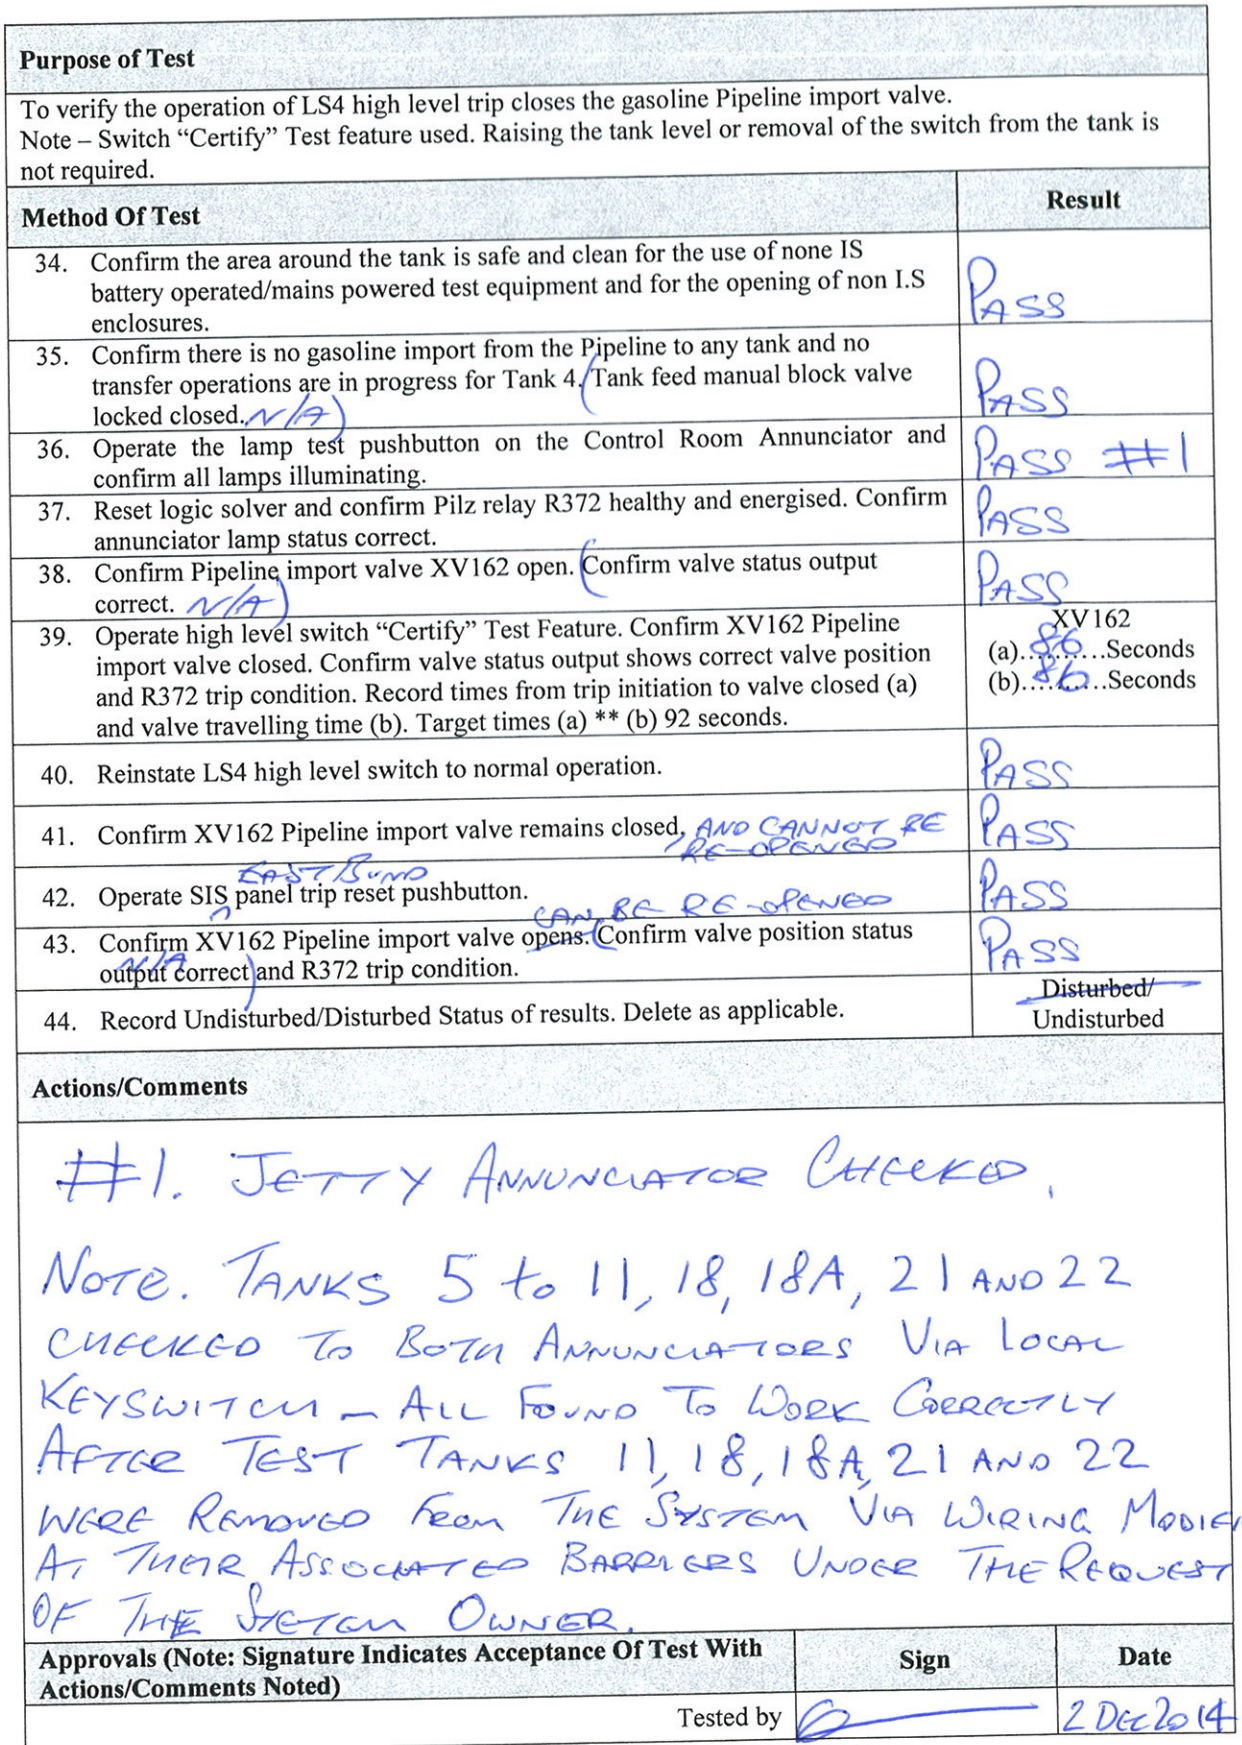 Purpose of Test
To verify the operation of LS4 high level trip closes the gasoline Pipeline import valve.
Note – Switch “Certify” Test feature used. Raising the tank level or removal of the switch from the tank is
not required.
Method Of Test
Result
34. Confirm the area around the tank is safe and clean for the use of none IS
battery operated/mains powered test equipment and for the opening of non I.S
enclosures.
PASS
35. Confirm there is no gasoline import from the Pipeline to any tank and no
transfer operations are in progress for Tank 4. (Tank feed manual block valve
locked closed. N/A)
PASS
36. Operate the lamp test pushbutton on the Control Room Annunciator and
confirm all lamps illuminating.
PASS #1
37. Reset logic solver and confirm Pilz relay R372 healthy and energised. Confirm
annunciator lamp status correct.
PASS
38. Confirm Pipeline import valve XV162 open. (Confirm valve status output
correct. N/A)
PASS
39. Operate high level switch “Certify” Test Feature. Confirm XV162 Pipeline
import valve closed. Confirm valve status output shows correct valve position
and R372 trip condition. Record times from trip initiation to valve closed (a)
and valve travelling time (b). Target times (a) ** (b) 92 seconds.
XV162
(a)...86...Seconds
(b)...86...Seconds
40. Reinstate LS4 high level switch to normal operation.
PASS
41. Confirm XV162 Pipeline import valve remains closed, AND CANNOT BE
RE-OPENED
PASS
EAST BUND
42. Operate SIS panel trip reset pushbutton.
PASS
CAN BE RE-OPENED
43. Confirm XV162 Pipeline import valve opens. (Confirm valve position status
N/A
output correct) and R372 trip condition.
PASS
44. Record Undisturbed/Disturbed Status of results. Delete as applicable.
Disturbed/
Undisturbed
Actions/Comments
#1. JETTY ANNUNCIATOR CHECKED.
NOTE. TANKS 5 to 11, 18, 18A, 21 AND 22
CHECKED TO BOTH ANNUNCIATORS VIA LOCAL
KEYSWITCH – ALL FOUND TO WORK CORRECTLY
AFTER TEST TANKS 11, 18, 18A, 21 AND 22
WERE REMOVED FROM THE SYSTEM VIA WIRING MODIF
AT THEIR ASSOCIATED BARRIERS UNDER THE REQUEST
OF THE SYSTEM OWNER.
Approvals (Note: Signature Indicates Acceptance Of Test With
Actions/Comments Noted)
Sign
Date
Tested by
2 DEC 2014